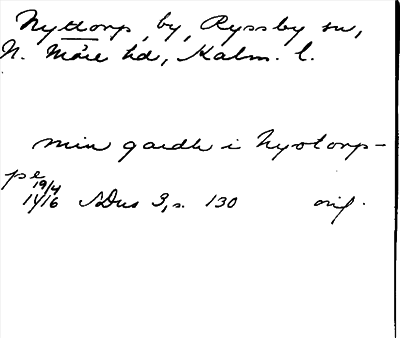 Nyttorp, by, Ryssby sn,
N. Möre hd, Kalm. l.
min gardh i Nyotorp-
pe
19/4
1416 SDns 3, s. 130 orig.